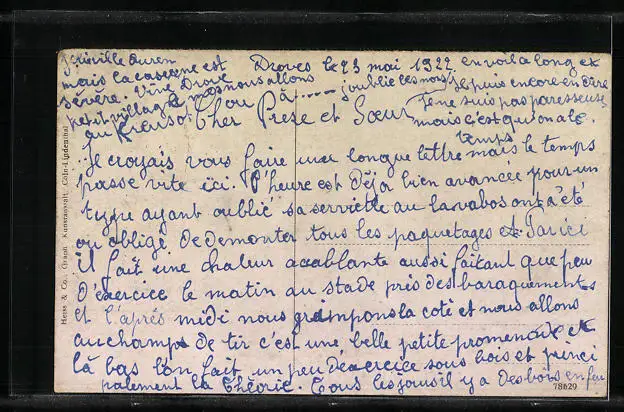 jolie ville duren
mais la caserne est
sévère. Vive Drove
petit village mais nous allons
au Kreusot ou à ......
Droves le 23 mai 1922 en voila long et
j'oublie les nous je puis encore en dire
Je ne suis pas paresseuse
mais c'est qu'on a le
temps
Cher Frere et Sœur
Je croyais vous faire une longue lettre mais le temps
passe vite ici. l'heure est déja bien avancée pour un
type ayant oublié sa serviette au lavabos on a été
ou obligé de demonter tous les paquetages et. Par ici
il fait une chaleur acablante aussi faitant que peu
d'exercice le matin au stade près des baraquements
et l'après midi nous grimpons la cote et nous allons
au champs de tir c'est une belle petite promenade et
là bas l'on fait un peu d'exercice sous bois et princi
palement la Théorie. Tous les jours il y a des bois en feu
Heiss & Co., Graph. Kunstanstalt, Cöln-Lindenthal
78629